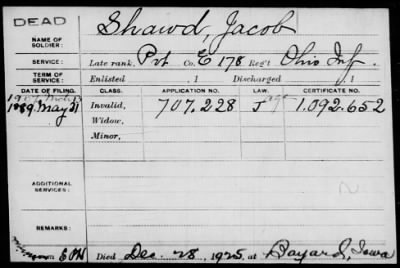 DEAD
NAME OF SOLDIER: Shawd, Jacob
SERVICE: Late rank, Pvt Co. E 178 Reg't Ohio Inf.
TERM OF SERVICE: Enlisted , 1 Discharged , 1
DATE OF FILING. CLASS. APPLICATION NO. LAW. CERTIFICATE NO.
1889 May 31 Invalid, 707.228 J 1.092.652
Widow,
Minor,
ADDITIONAL SERVICES:
REMARKS:
Died Dec. 28, 1925, at Bayard, Iowa